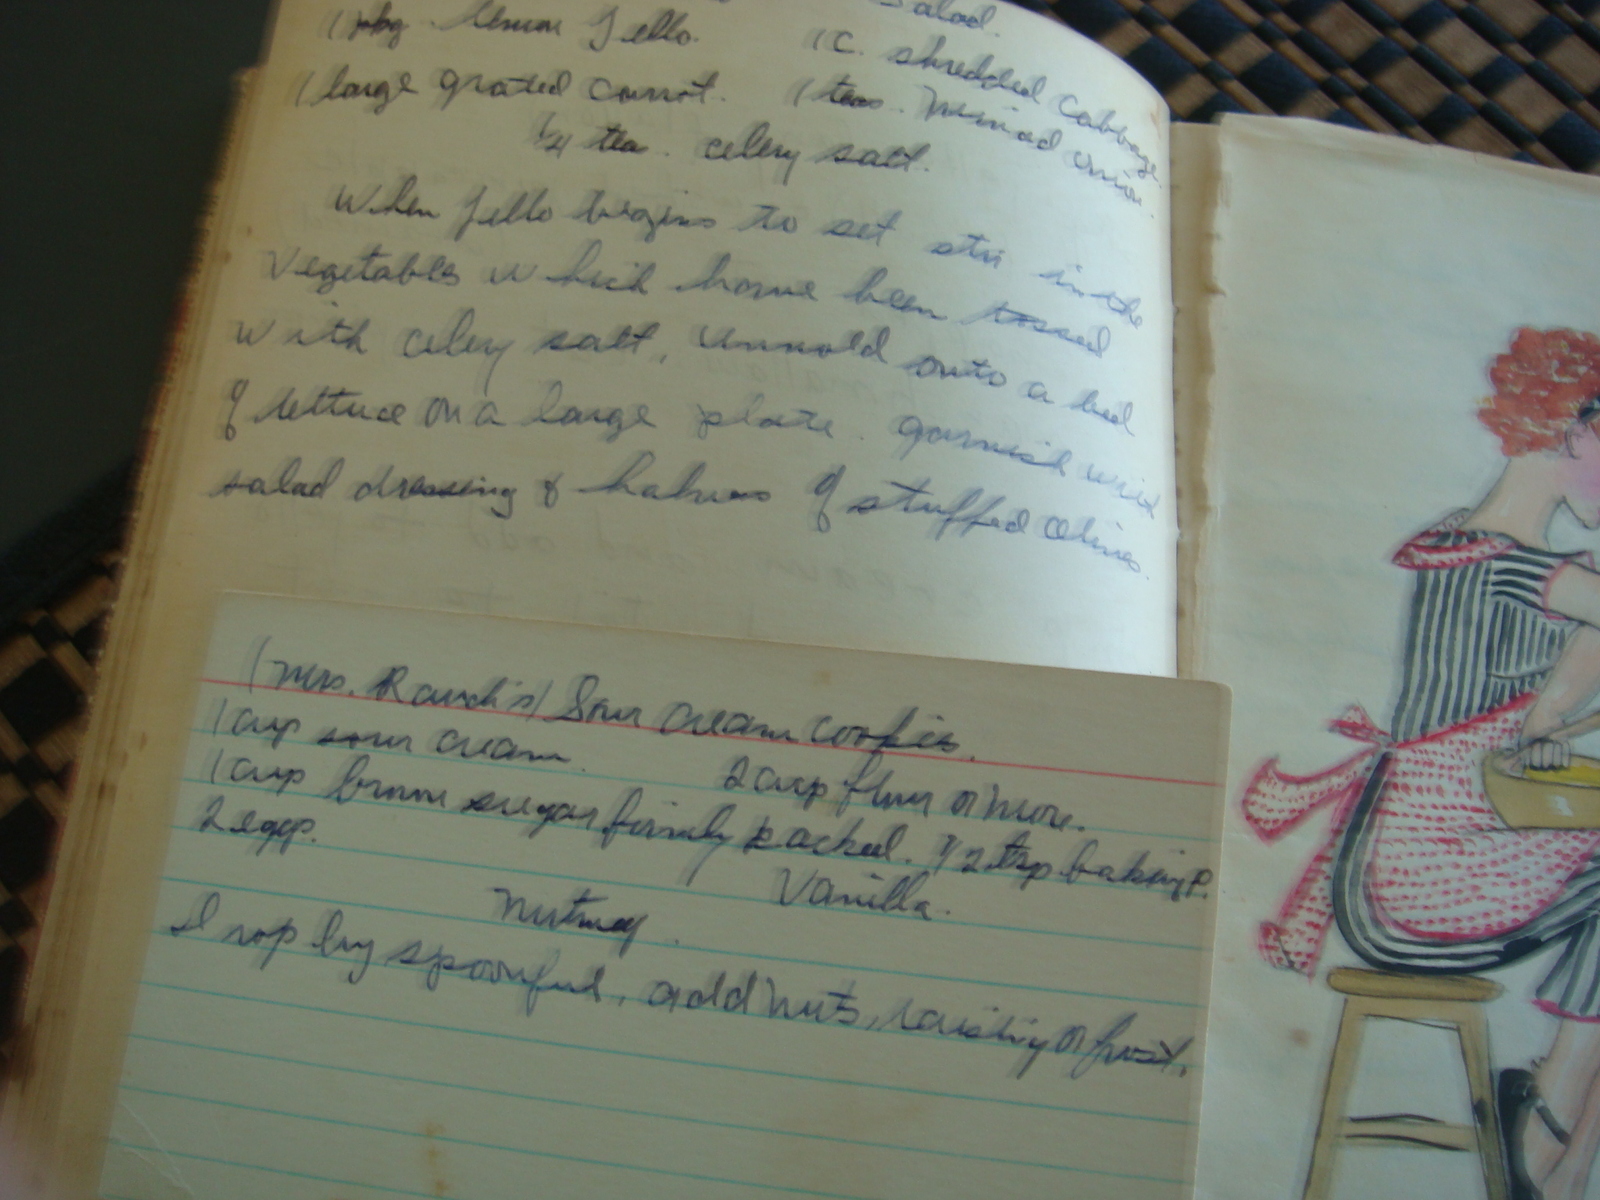 Salad.
1 pkg. lemon Jello. 1 C. shredded cabbage.
1 large grated carrot. 1 teas. minced onion.
1/4 tea. celery salt.
When Jello begins to set stir in the
Vegetables which have been tossed
with celery salt, Unmold onto a bed
of lettuce on a large plate. garnish with
salad dressing & halves of stuffed olives.
(Mrs. Rauch's) Sour cream cookies.
1 cup sour cream. 2 cup flour or more.
1 cup brown sugar firmly packed. 1/2 tsp baking P.
2 eggs. Vanilla.
Nutmeg.
Drop by spoonful, add nuts, or frost.